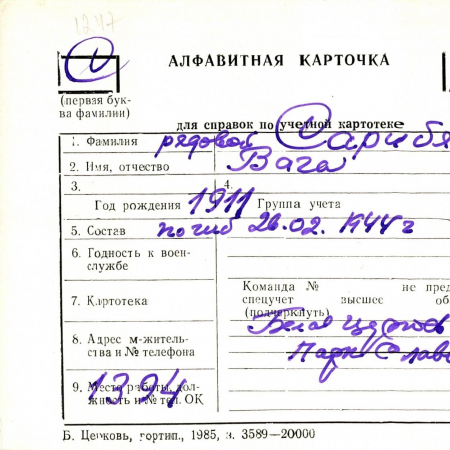 1247
С
АЛФАВИТНАЯ КАРТОЧКА
(первая бук-
ва фамилии)
для справок по учетной картотеке
1. Фамилия рядовой Сарибя
2. Имя, отчество Вага
3. 4.
Год рождения 1911 Группа учета
5. Состав погиб 26.02. 1944 г
6. Годность к воен-
службе
Команда № не пред
7. Картотека спецучет высшес об
(подчеркнуть)
Белая Церковь
8. Адрес м-жительс-
ства и № телефона Парк Слави
9. Место работы, дол-
жность и № тел. ОК 1394
Б. Церковь, гортип., 1985, з. 3589—20000